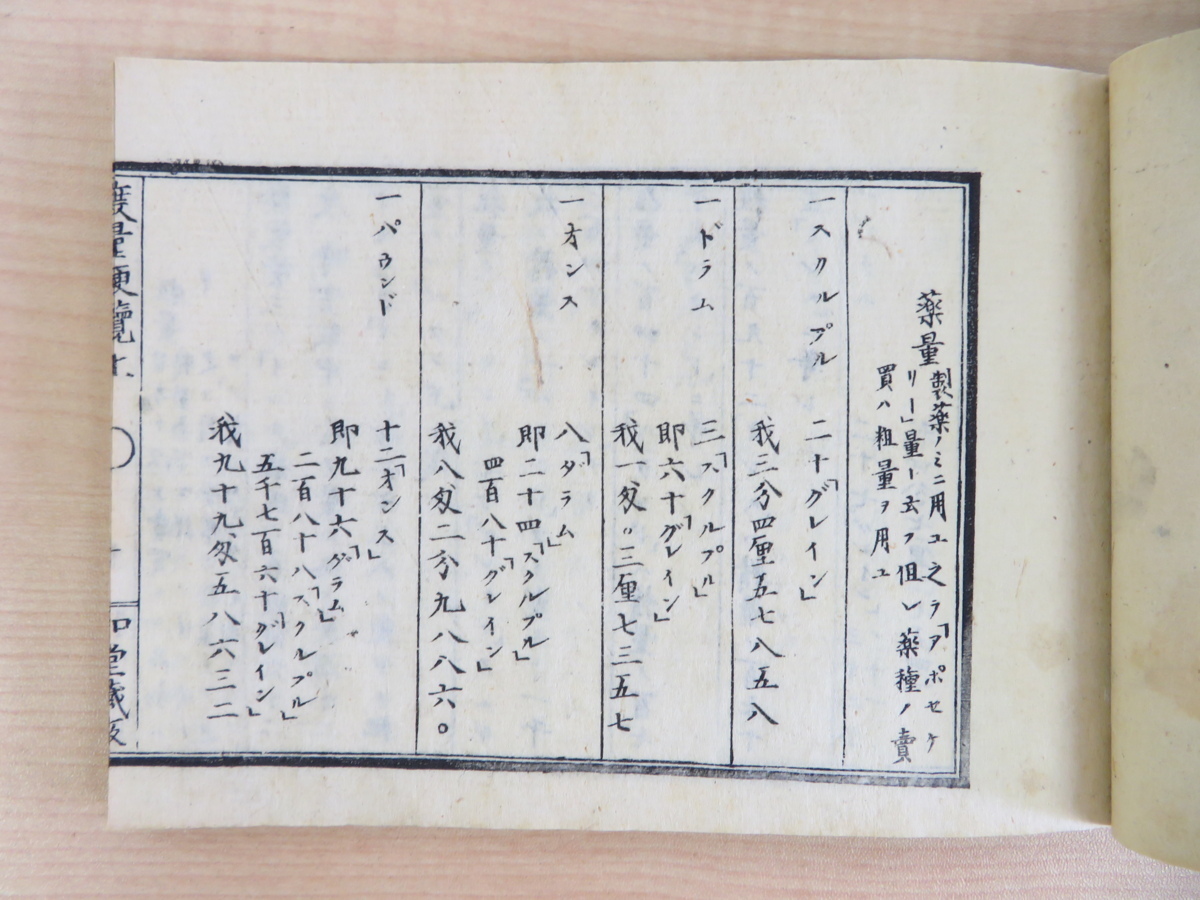 薬量 製薬ノミニ用ユ之ヲ「アポセケ
リー」量ト云フ但シ薬種ノ賣
買ハ粗量ヲ用ユ
一スクルプル
二十「グレイン」
我三分四厘五七八五八
一ドラム
三「スクルプル」
即六十「グレイン」
我一匁〇三厘七三五七
一オンス
八「ダラム
即二十四「スクルプル」
四百八十「グレイン」
我八匁二分九八八六〇
一パウンド
十二「オンス」
即九十六「ダラム」
二百八十八「スクルプル」
五千七百六十「グレイン」
我九十九匁五八六三二
度量便覧 上